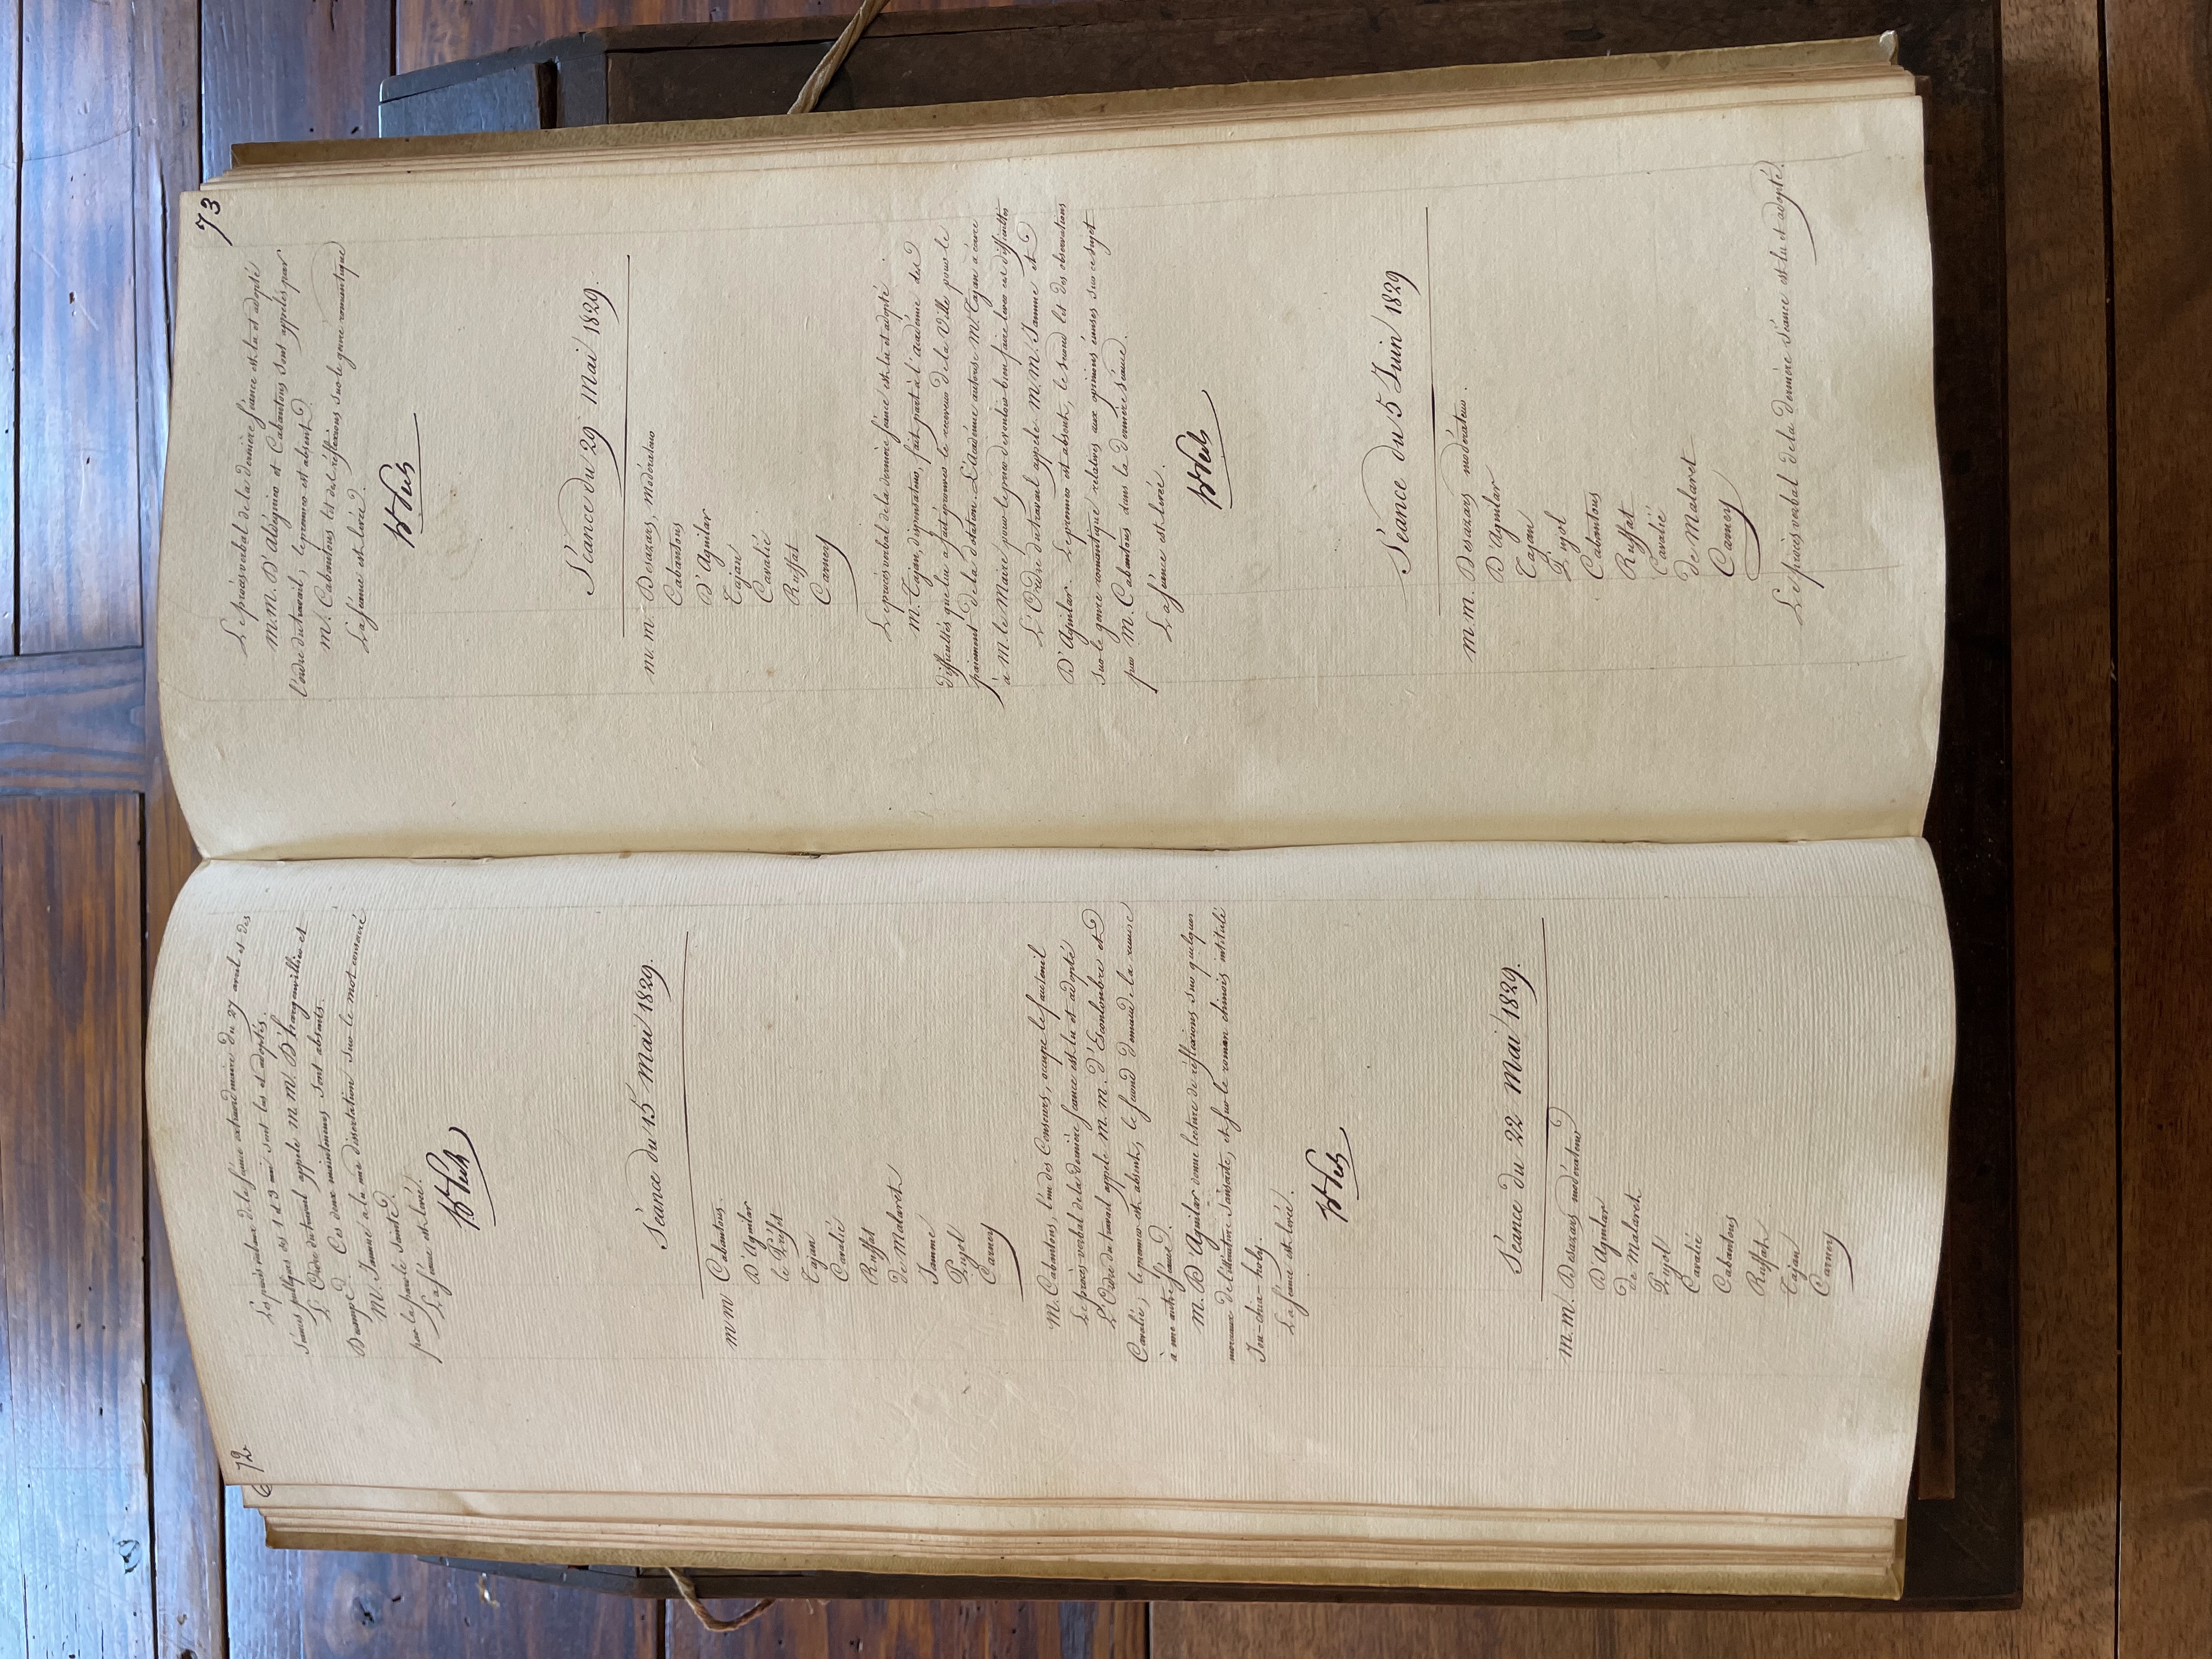 72
Les procès verbaux de la séance extraordinaire du 27 avril et des
séances publiques des 1 et 3 mai sont lus et adoptés.
L'Ordre du travail appele M.M. D'hargenvillier et
Dumège. Ces deux mainteneurs sont absents.
M. Jamme a lu une dissertation sur le mot consacré
par la parole sainte.
La séance est levée.
Séance du 15 Mai 1829.
m m Cabantous
D'Aguilar
le Préfet
Tajan
Cavalié
Ruffat
de Malaret
Jamme
Pujol
Carney
M. Cabantous, l'un des Censeurs, occupe le fauteuil
Le procès-verbal de la dernière séance est lu et adopté
L'Ordre du travail appele M. M. d'Escouloubre et
Cavalié; le premier est absent, le second demande la remise
à une autre séance.
M. D'Aguilar donne lecture de réflexions sur quelques
morceaux de littérature dansante, et sur le roman chinois intitulé
Iou-chia-holy.
La séance est levée.
Séance du 22 Mai 1829.
m.m. Desazars modérateur
D'Aguilar
de Malaret
Pujol
Cavalié
Cabantous
Ruffat
Tajan
Carney
73
Le procès verbal de la dernière séance est lu et adopté
M.M. D'Aldéguier et Cabantous sont appelés par
l'ordre du travail, le premier est absent.
M. Cabantous lit des réflexions sur le genre romantique
La séance est levée.
Séance du 29 Mai 1829.
m. m. Desazars, modérateur
Cabantous
D'Aguilar
Tajan
Cavalié
Ruffat
Carney
Le procès verbal de la dernière séance est lu et adopté.
M. Tajan, dispensateur, fait part à l'académie des
difficultés que lui a fait éprouver le receveur de la Ville pour le
paiement de la dotation. L'académie autorise M. Tajan à écrire
à M. le Maire pour le prier de vouloir bien faire lever ces difficultés
L'Ordre du travail appele M. M. Jamme et
D'Aguilar. Le premier est absent, le second lit des observations
sur le genre romantique relatives aux opinions émises sur ce sujet
par M. Cabantous dans la dernière séance.
La séance est levée.
Séance du 5 Juin 1829
m.m. Desazars modérateur.
D'Aguilar
Tajan
Pujol
Cabantous
Ruffat
Cavalié
de Malaret
Carney
Le procès verbal de la dernière séance est lu et adopté.